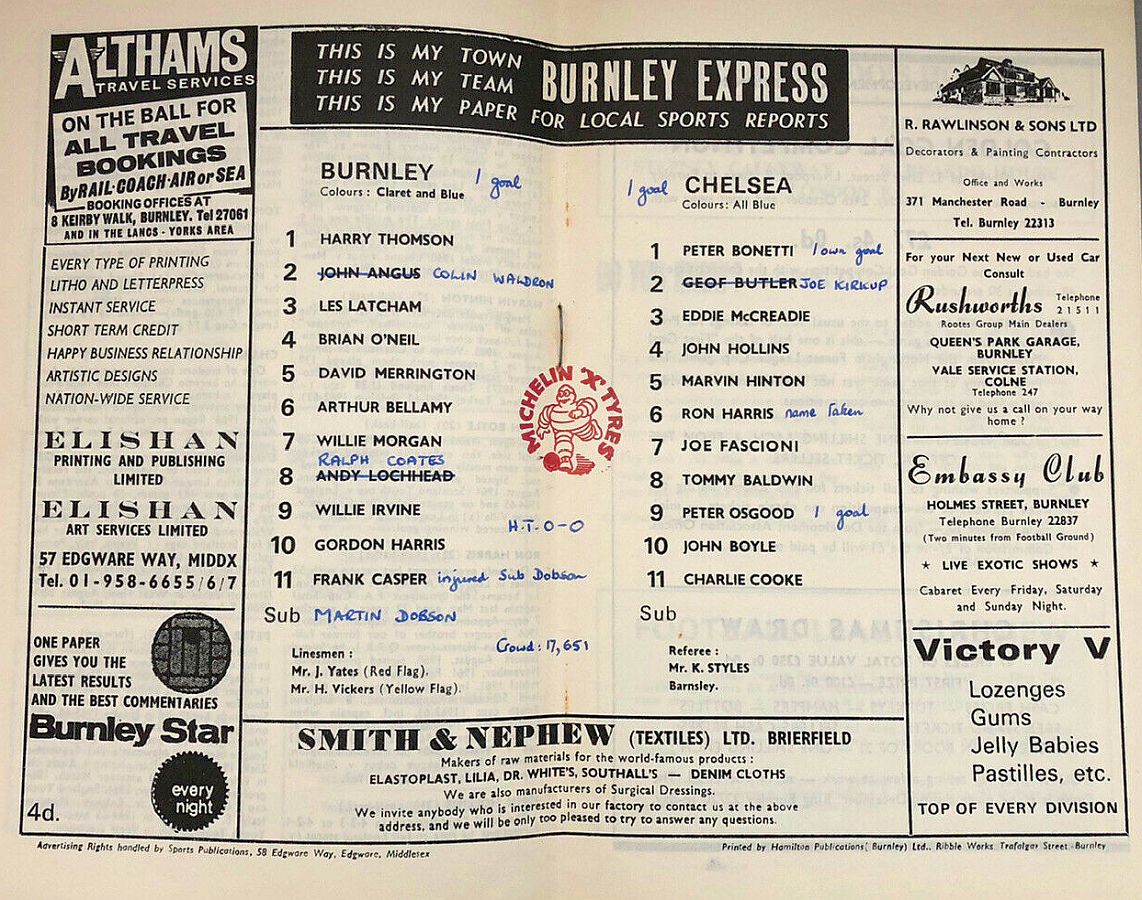 ALTHAMS
TRAVEL SERVICES
ON THE BALL FOR
ALL TRAVEL
BOOKINGS
By RAIL·COACH·AIR or SEA
BOOKING OFFICES AT
8 KEIRBY WALK, BURNLEY. Tel 27061
AND IN THE LANCS - YORKS AREA
EVERY TYPE OF PRINTING
LITHO AND LETTERPRESS
INSTANT SERVICE
SHORT TERM CREDIT
HAPPY BUSINESS RELATIONSHIP
ARTISTIC DESIGNS
NATION-WIDE SERVICE
ELISHAN
PRINTING AND PUBLISHING
LIMITED
ELISHAN
ART SERVICES LIMITED
57 EDGWARE WAY, MIDDX
Tel. 01-958-6655/6/7
ONE PAPER
GIVES YOU THE
LATEST RESULTS
AND THE BEST COMMENTARIES
Burnley Star
every
night
4d.
THIS IS MY TOWN
THIS IS MY TEAM
THIS IS MY PAPER FOR LOCAL SPORTS REPORTS
BURNLEY EXPRESS
BURNLEY 1 goal
Colours : Claret and Blue
1 HARRY THOMSON
2 JOHN ANGUS COLIN WALDRON
3 LES LATCHAM
4 BRIAN O'NEIL
5 DAVID MERRINGTON
6 ARTHUR BELLAMY
7 WILLIE MORGAN
RALPH COATES
8 ANDY LOCHHEAD
9 WILLIE IRVINE
H.T. 0-0
10 GORDON HARRIS
11 FRANK CASPER injured Sub Dobson
Sub MARTIN DOBSON
Crowd: 17,651
Linesmen :
Mr. J. Yates (Red Flag).
Mr. H. Vickers (Yellow Flag).
MICHELIN 'X' TYRES
1 goal CHELSEA
Colours: All Blue
1 PETER BONETTI 1 own goal
2 GEOF BUTLER JOE KIRKUP
3 EDDIE McCREADIE
4 JOHN HOLLINS
5 MARVIN HINTON
6 RON HARRIS name taken
7 JOE FASCIONI
8 TOMMY BALDWIN
9 PETER OSGOOD 1 goal
10 JOHN BOYLE
11 CHARLIE COOKE
Sub
Referee :
Mr. K. STYLES
Barnsley.
SMITH & NEPHEW (TEXTILES) LTD. BRIERFIELD
Makers of raw materials for the world-famous products :
ELASTOPLAST, LILIA, DR. WHITE'S, SOUTHALL'S — DENIM CLOTHS
We are also manufacturers of Surgical Dressings.
We invite anybody who is interested in our factory to contact us at the above
address, and we will be only too pleased to try to answer any questions.
R. RAWLINSON & SONS LTD
Decorators & Painting Contractors
Office and Works
371 Manchester Road - Burnley
Tel. Burnley 22313
For your Next New or Used Car
Consult
Rushworths Telephone
21511
Rootes Group Main Dealers
QUEEN'S PARK GARAGE,
BURNLEY
VALE SERVICE STATION,
COLNE
Telephone 247
Why not give us a call on your way
home ?
Embassy Club
HOLMES STREET, BURNLEY
Telephone Burnley 22837
(Two minutes from Football Ground)
★ LIVE EXOTIC SHOWS ★
Cabaret Every Friday, Saturday
and Sunday Night.
Victory V
Lozenges
Gums
Jelly Babies
Pastilles, etc.
TOP OF EVERY DIVISION
Advertising Rights handled by Sports Publications, 58 Edgware Way, Edgware, Middlesex
Printed by Hamilton Publications( Burnley) Ltd., Ribble Works Trafalgar Street Burnley